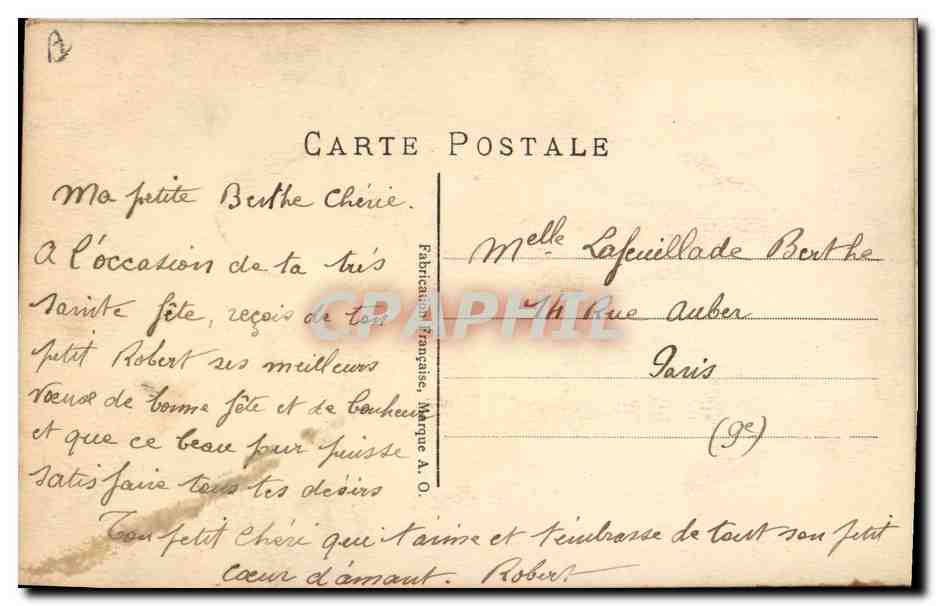 CARTE POSTALE
Ma petite Berthe Chérie.
A l'occasion de ta très
sainte fête, reçois de ton
petit Robert ses meilleurs
vœux de bonne fête et de bonheur
et que ce beau jour puisse
satisfaire tous tes désirs
Ton petit Chéri qui t'aime et t'embrasse de tout son petit
cœur d'amant. Robert
Fabrication Française, Marque A. O.
Melle Lafeuillade Berthe
14 Rue Auber
Paris
(9e)
CPAPHIL